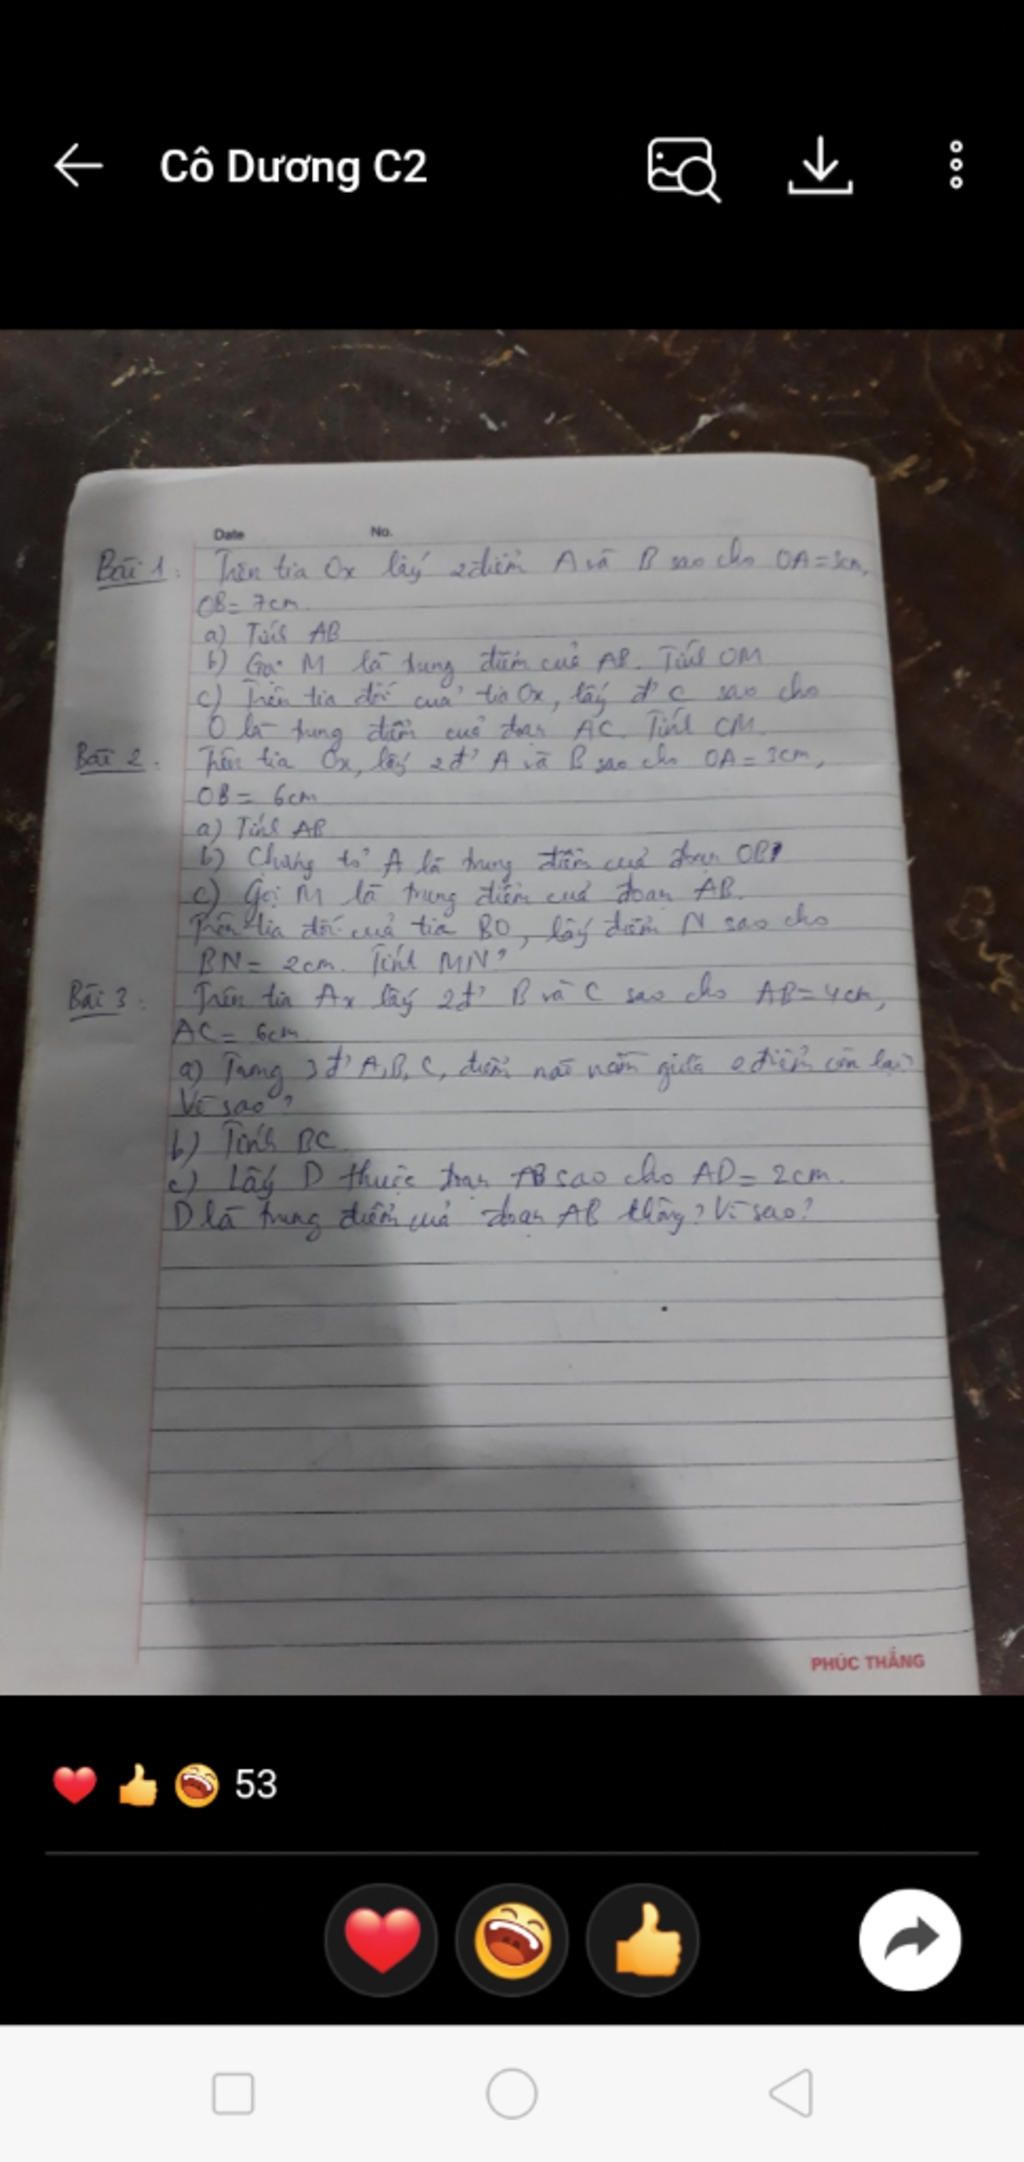 Cô Dương C2
Date No.
Bài 1: Trên tia Ox lấy 2 điểm A và B sao cho OA = 3cm,
OB = 7cm.
a) Tính AB
b) Gọi M là trung điểm của AB. Tính OM
c) Trên tia đối của tia Ox, lấy đ' C sao cho
O là trung điểm của đoạn AC. Tính CM.
Bài 2. Trên tia Ox, lấy 2 đ' A và B sao cho OA = 3cm,
OB = 6cm
a) Tính AB
b) Chứng tỏ A là trung điểm của đoạn OB
c) Gọi M là trung điểm của đoạn AB.
Trên tia đối của tia BO, lấy điểm N sao cho
BN = 2cm. Tính MN?
Bài 3: Trên tia Ax lấy 2 đ' B và C sao cho AB = 4cm,
AC = 6cm.
a) Trong 3 đ' A, B, C, điểm nào nằm giữa 2 điểm còn lại?
Vì sao?
b) Tính BC
c) Lấy D thuộc đoạn AB sao cho AD = 2cm.
D là trung điểm của đoạn AB không? Vì sao?
PHÚC THẮNG
53